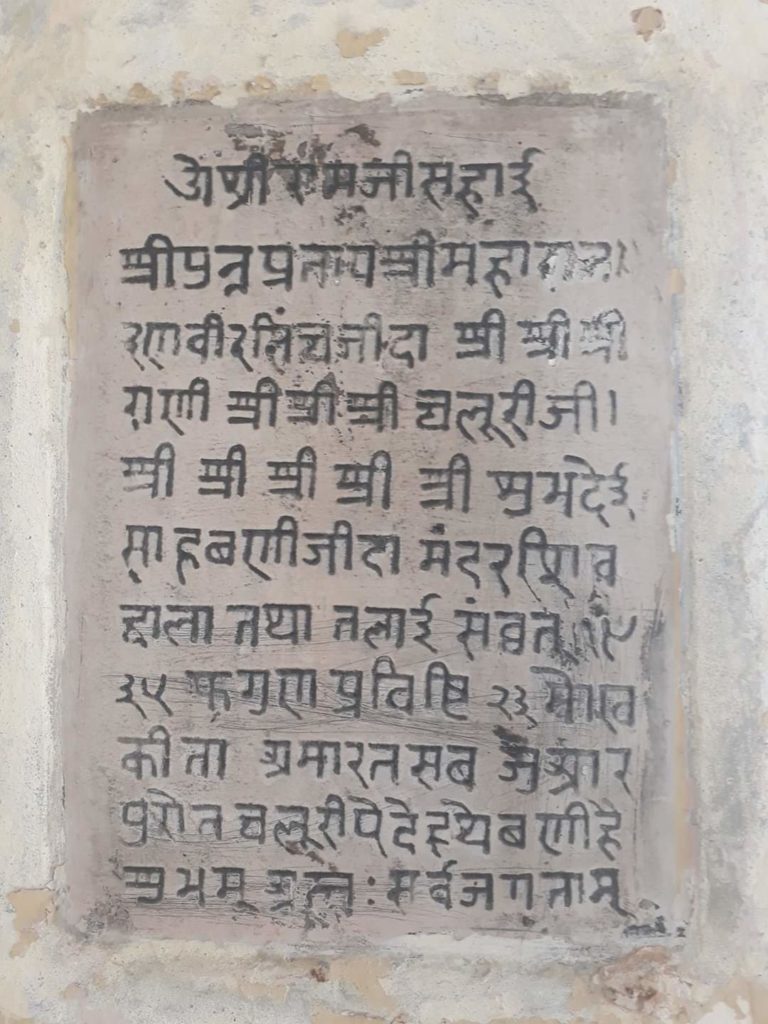 ओ श्री राम जी सहाई
श्री पुन्न प्रताप श्री महाराजा
रणवीरसिंघ जी दा श्री श्री श्री
राणी श्री श्री श्री चलूरी जी।
श्री श्री श्री श्री श्री शुभदेई
साहबणी जी दा मंदर शिव
द्वाला तथा तलाई संवत् १९
३५ फगुण प्रविष्टि २३
कीता अमारत सब
प्रोत चलूरीये दे बणी है
शुभम् अस्तु : सर्वजगताम्